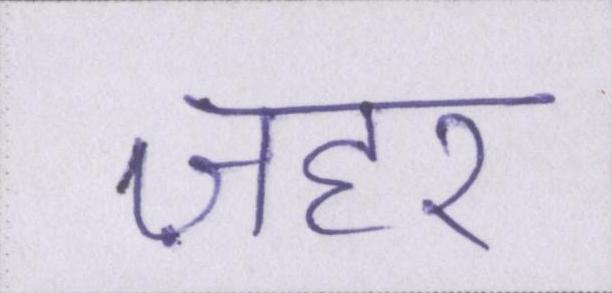 ज़हर